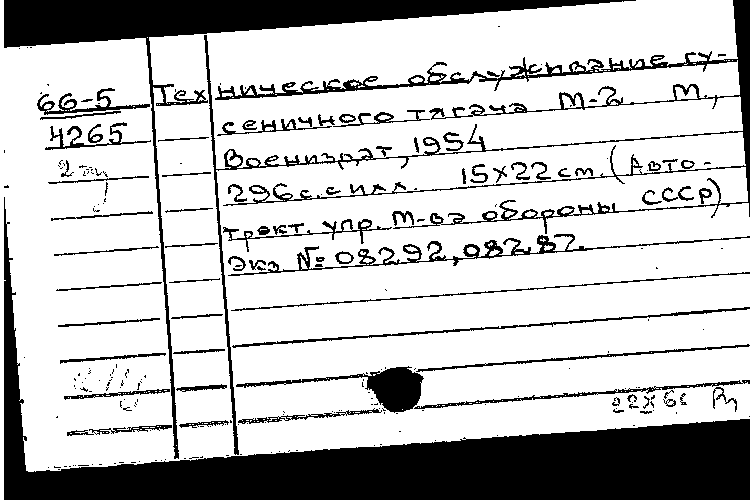 66-5 Техническое обслуживание гу-
4265 сеничного тягача М-2. М.,
2 экз Воениздат, 1954
296 с. с илл. 15х22 см. (Авто-
тракт. упр. М-ва обороны СССР).
Экз № 08292, 08287.
22X 61